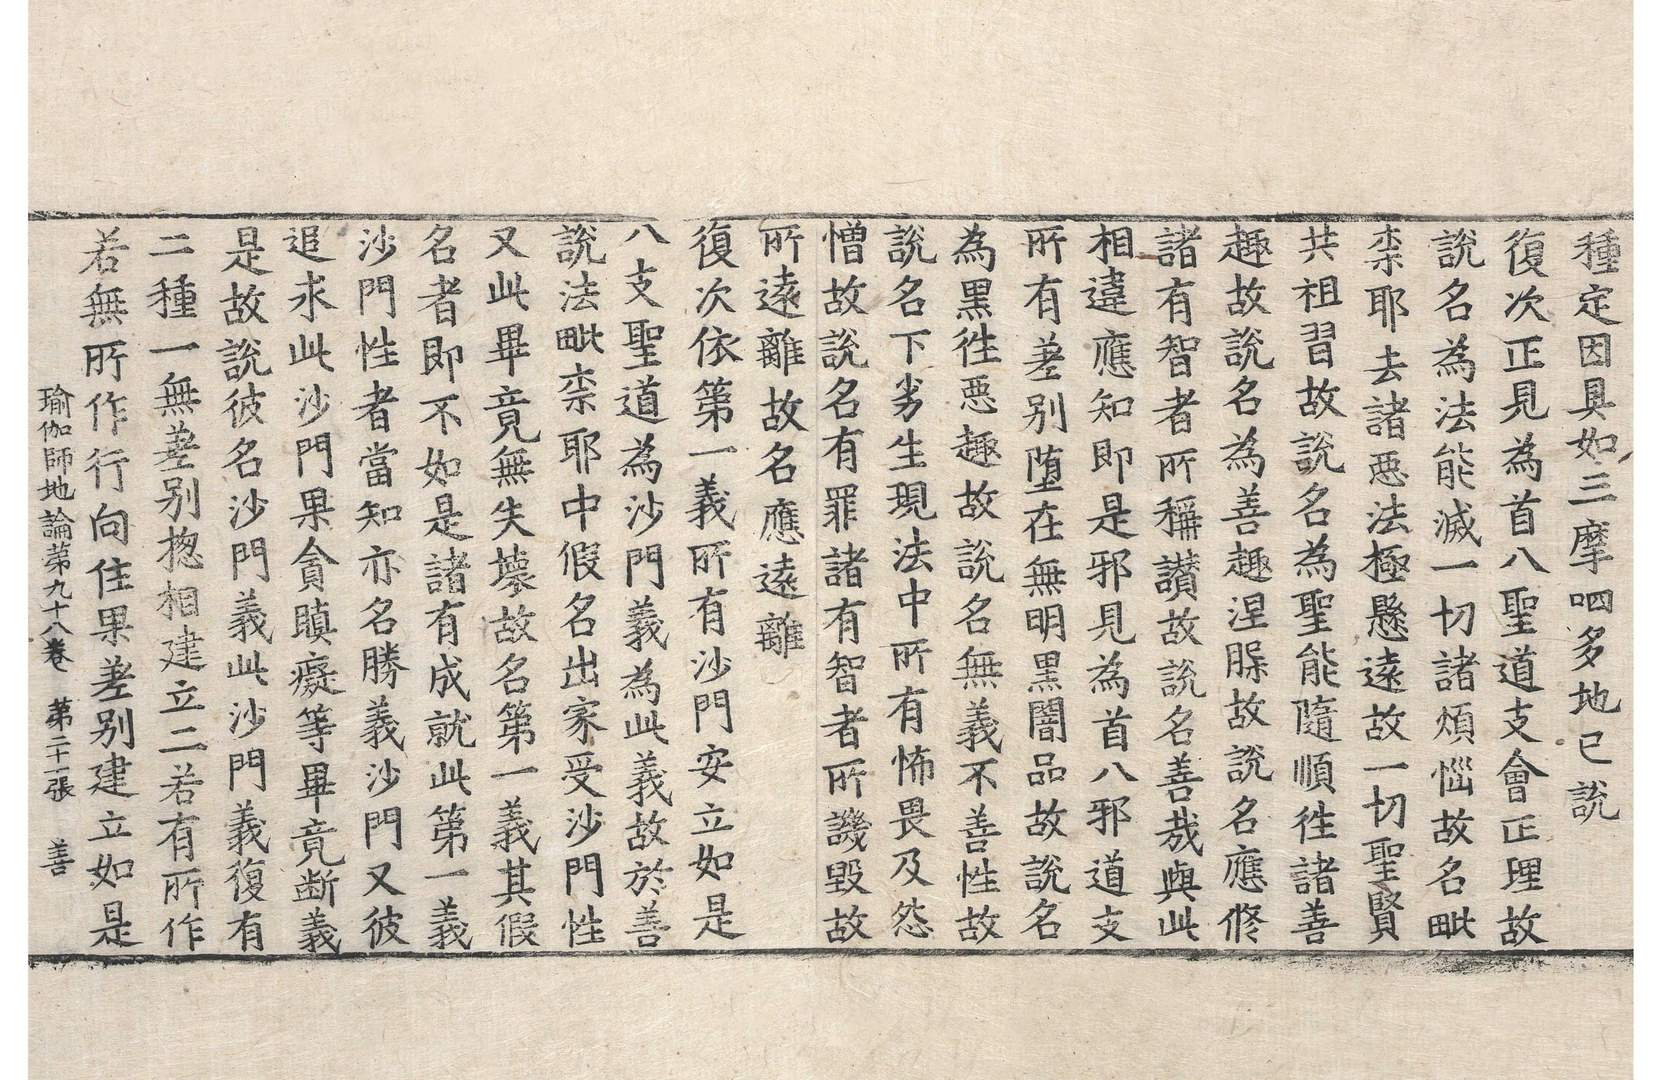 種定因具如三摩呬多地已說
復次正見為首八聖道支會正理故
說名為法能滅一切諸煩惱故名毗
柰耶去諸惡法極懸遠故一切聖賢
共祖習故說名為聖能隨順往諸善
趣故說名為善趣涅槃故說名應修
諸有智者所稱讃故說名善哉與此
相違應知即是邪見為首八邪道支
所有差別堕在無明黑闇品故說名
為黑徃惡趣故說名無義不善性故
說名下劣生現法中所有怖畏及怨
憎故說名有罪諸有智者所譏毀故
所遠離故名應遠離
復次依第一義所有沙門安立如是
八支聖道為沙門義為此義故於善
說法毗柰耶中假名出家受沙門性
又此畢竟無失壞故名第一義其假
名者即不如是諸有成就此第一義
沙門性者當知亦名勝義沙門又彼
追求此沙門果貪瞋癡等畢竟斷義
是故說彼名沙門義此沙門義復有
二種一無差別揔相建立二若有所作
若無所作行向住果差別建立如是
瑜伽師地論第九十八卷 第二十一張 善